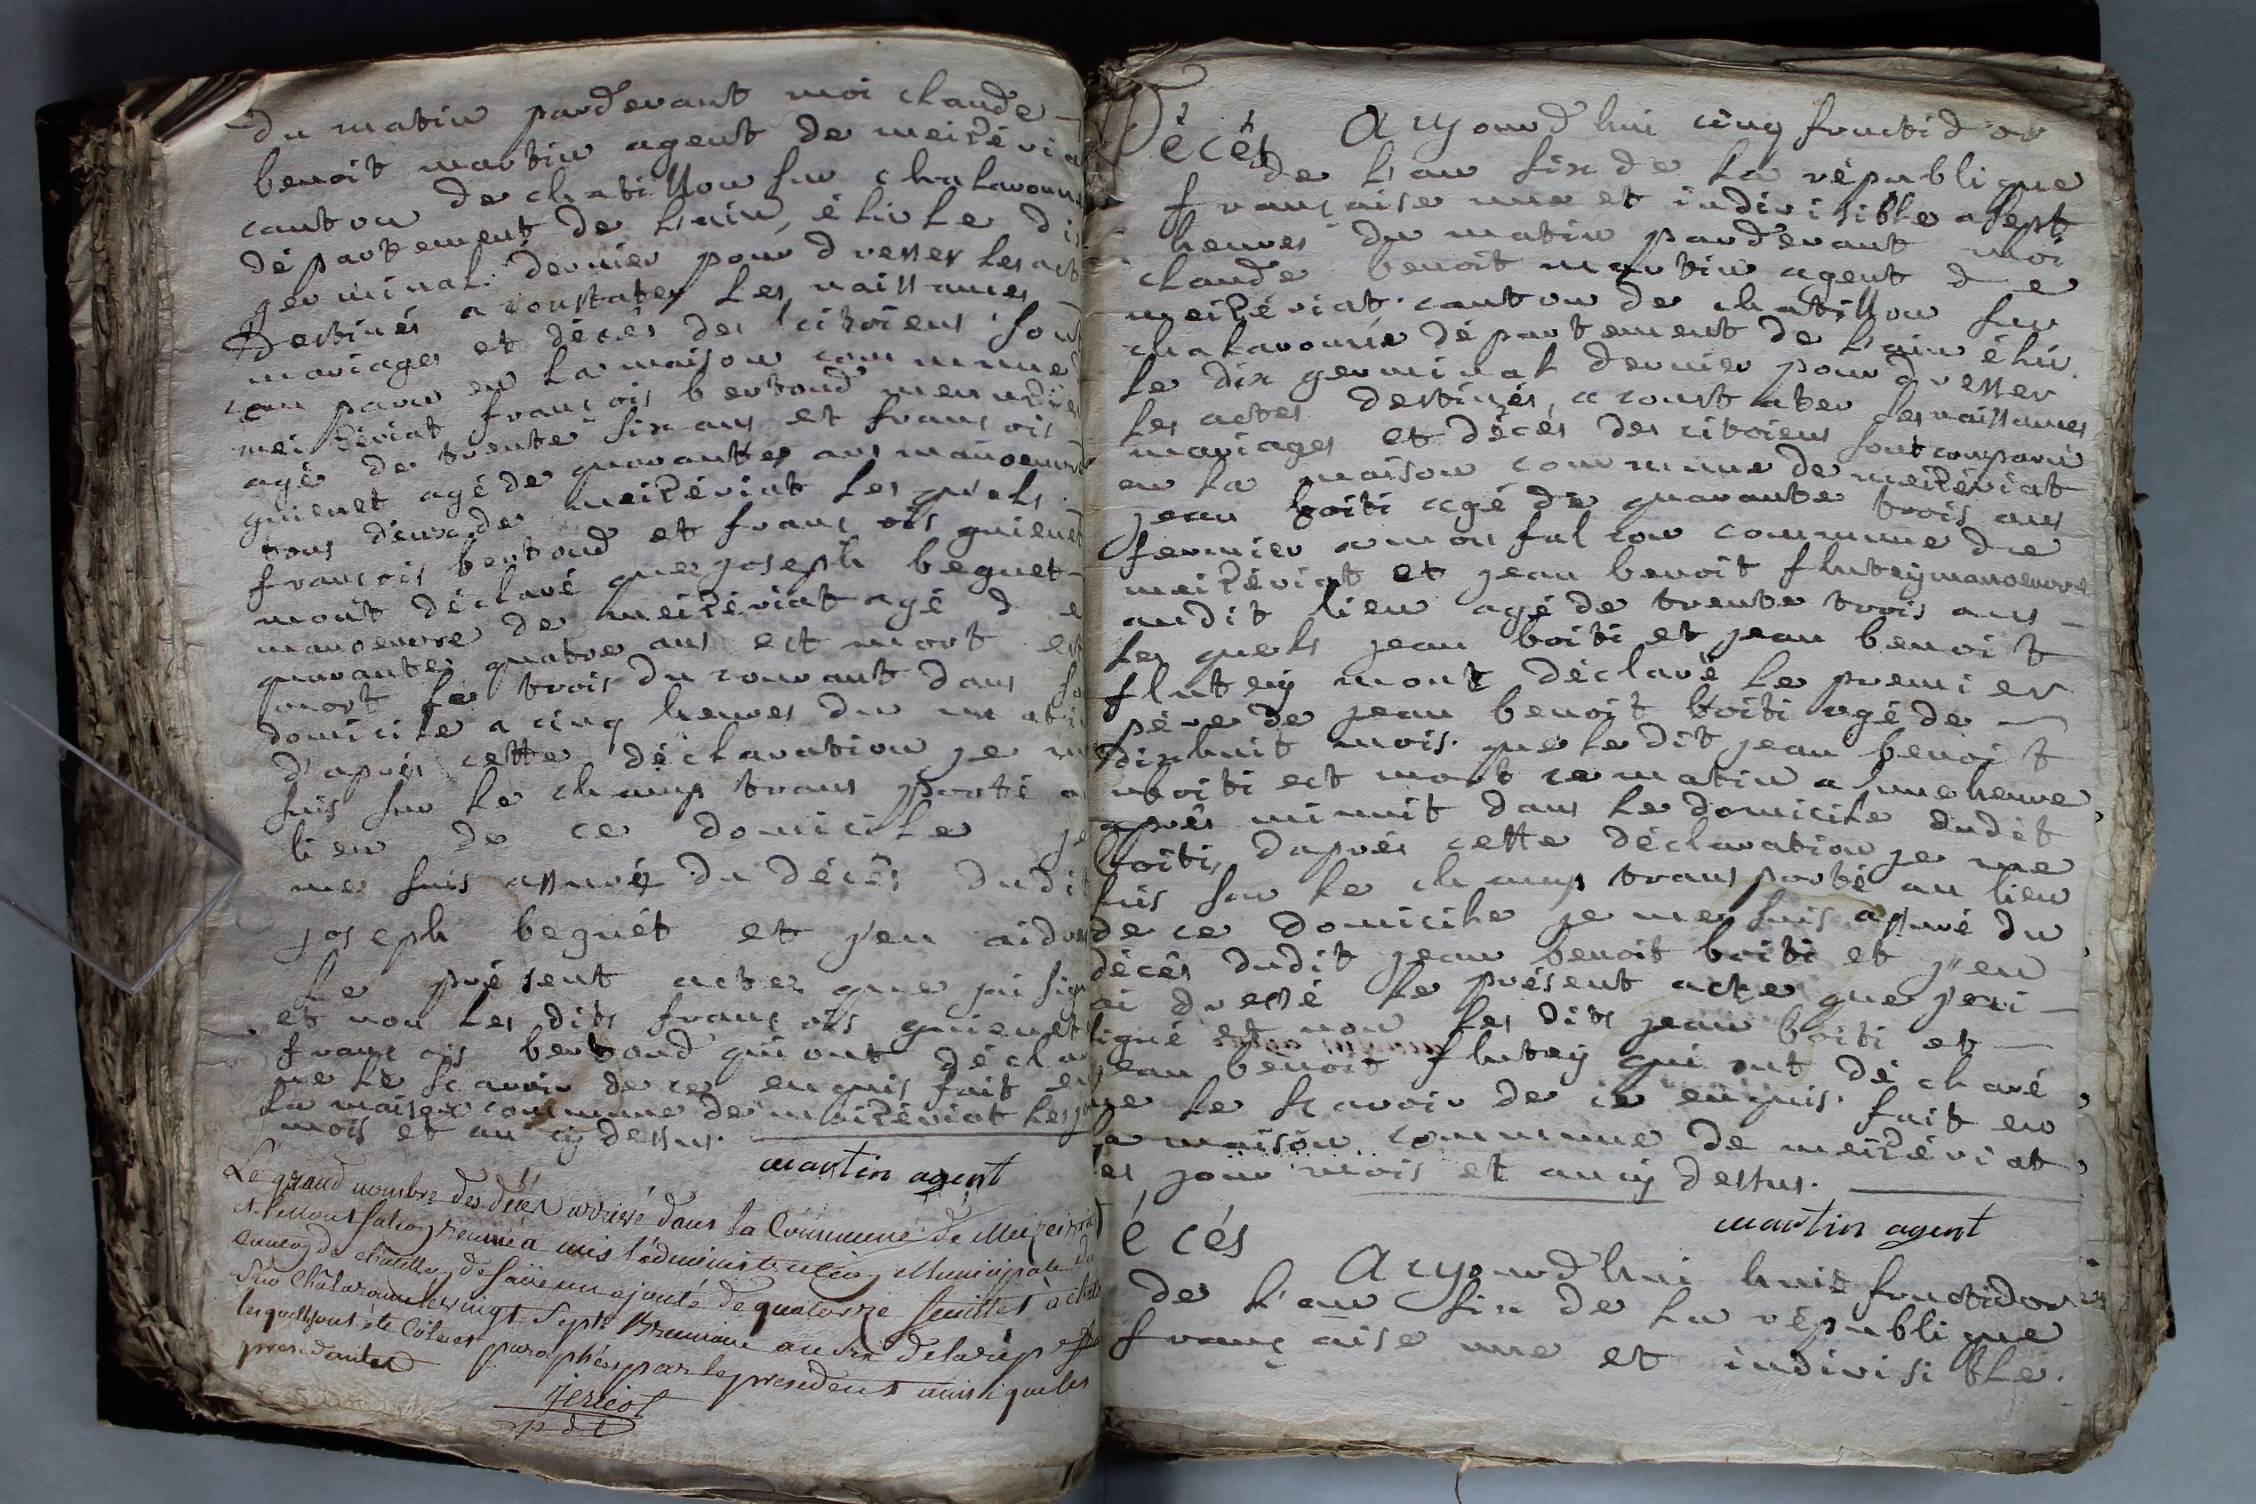 du matin pardevant moi claude
benoit martin agent de meizéria
canton de chatillon sur chalaronne
département de l'ain, élu le di
germinal dernier pour dresser les act
destinés a constater les naissances
mariages et décés des citoiens sont
com parus en la maison commune
meizériat françois bertoud
agé de trente six ans et françois
guienet agé de quarantes ans manoeuvre
tous deux de meizériat les quels
françois bertoud et françois guienet
mont déclaré que joseph beguet
manoeuvre de meizériat agé de
quarantes quatre ans est mort est
mort le trois du courant dans so
domicile a cinq heures du mati
d'aprés cette déclaration je m
suis sur le champs trans porté a
lieu de ce domicile je
me suis assuré du décés dudit
joseph beguét et j'en ai dres
le présent actes que jai sign
et non les dits françois guienet
françois bertoud qui ont décla
ne le scavoir de ce enquis fait en
la maison commune de maizériat les jo
mois et an cy dessus.
martin agent
Le grand nombre des décés arrivé dans la Commune de Meizeriat
et Monfalcon reunie a mis l'administration Municipale du
canton de chatillon de faire un ajouté de quatorze feuillet à chati
sur Chalaronne le vingt sept Brumaire an six de la rép
lesquelles ont été Côtées et paraphées par le president ainsi que les
precedantes
pdt
Décés Aujourd'hui cinq fructidor
de l'an six de la république
française une et indivisible a sept
heures du matin pardevant moi
claude benoit martin agent de
meizériat canton de chatillon sur
chalaronne département de l'ain élu
le dix germinal dernier pour dresser
les actes destinés a constater les naissances
mariages et décés des citoiens sont comparu
en la maison commune de meizériat
jean boiti agé de quarante trois ans
fermier a mon falcon commune de
meizériat et jean benoit flutey manoeuvre
audit lieu agé de trente trois ans
les quels jean boiti et jean benoit
flutey mont déclaré le premier
pére de jean benoit boiti agé de
dixhuit mois. que le dit jean benoit
boiti est mort ce matin a une heure
aprés minuit dans le domicile dudit
boiti, daprés cette déclaration je me
suis sur le champs trans porté au lieu
de ce domicile je me suis assuré du
décés dudit jean benoit boiti et j'en
ai dressé le présent acte que j'ai
signé et non les dits jean boiti et
jean benoit flutey qui ont déclaré
ne le scavoir de ce enquis. fait en
la maison commune de meizériat
les jour mois et an cy dessus.
martin agent
écés
Aujourd'hui huit fructidor
de l'an six de la république
française une et indivisible.